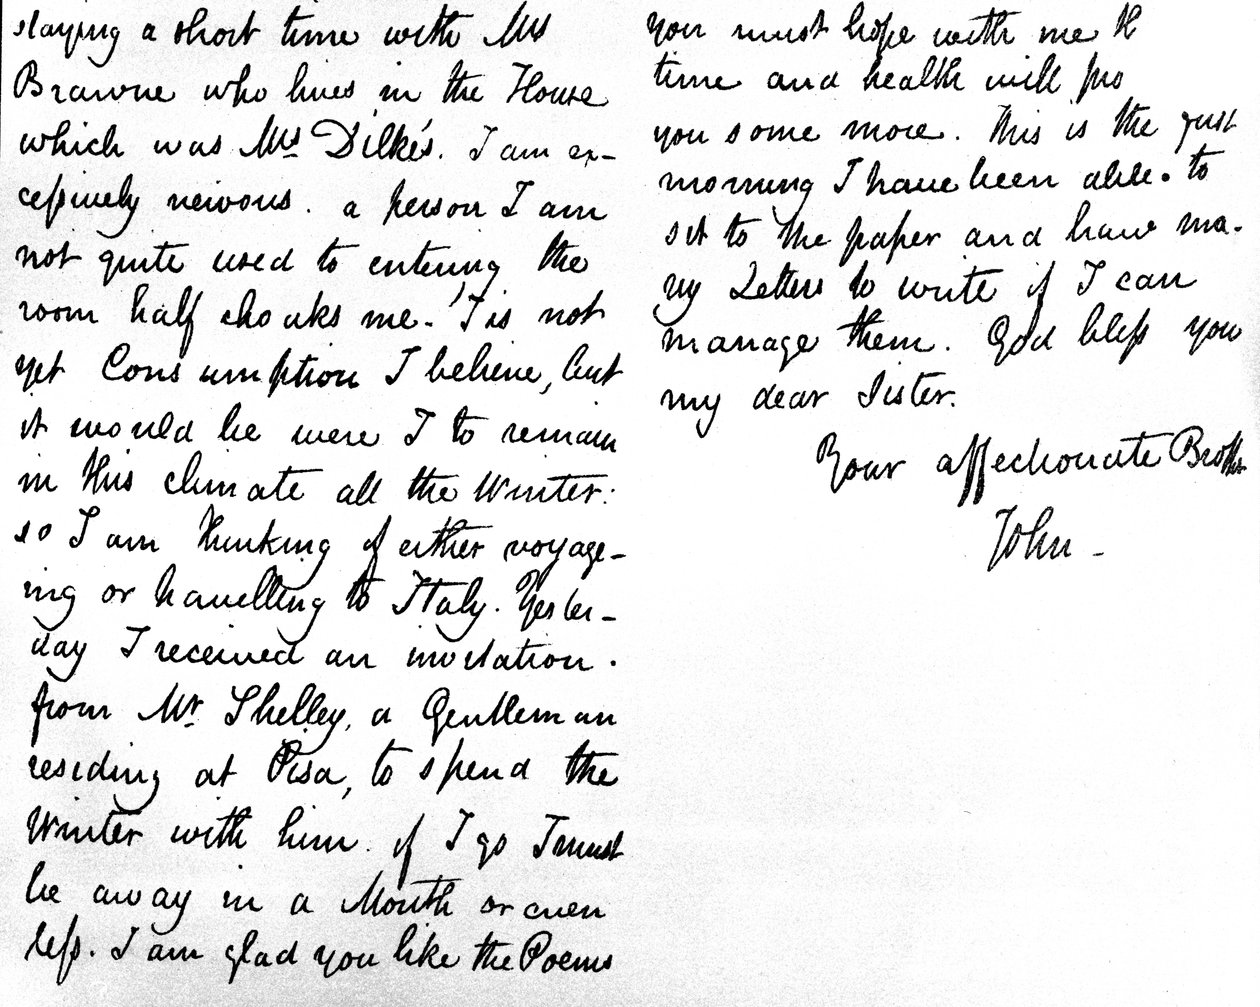 staying a short time with Mrs
Brawne who lives in the House
which was Mrs Dilke's. I am ex-
cessively nervous. a person I am
not quite used to entering the
room half choaks me. 'Tis not
yet Consumption I believe, but
it would be were I to remain
in this climate all the Winter:
so I am thinking of either voyage-
ing or travelling to Italy. Yester-
day I received an invitation.
from Mr Shelley, a Gentleman
residing at Pisa, to spend the
Winter with him. if I go I must
be away in a Month or even
less. I am glad you like the Poems
you must hope with me th
time and health will pro
you some more. This is the first
morning I have been able. to
sit to the paper and have ma-
ny Letters to write if I can
manage them. God bless you
my dear Sister.
Your affectionate Brother
John -